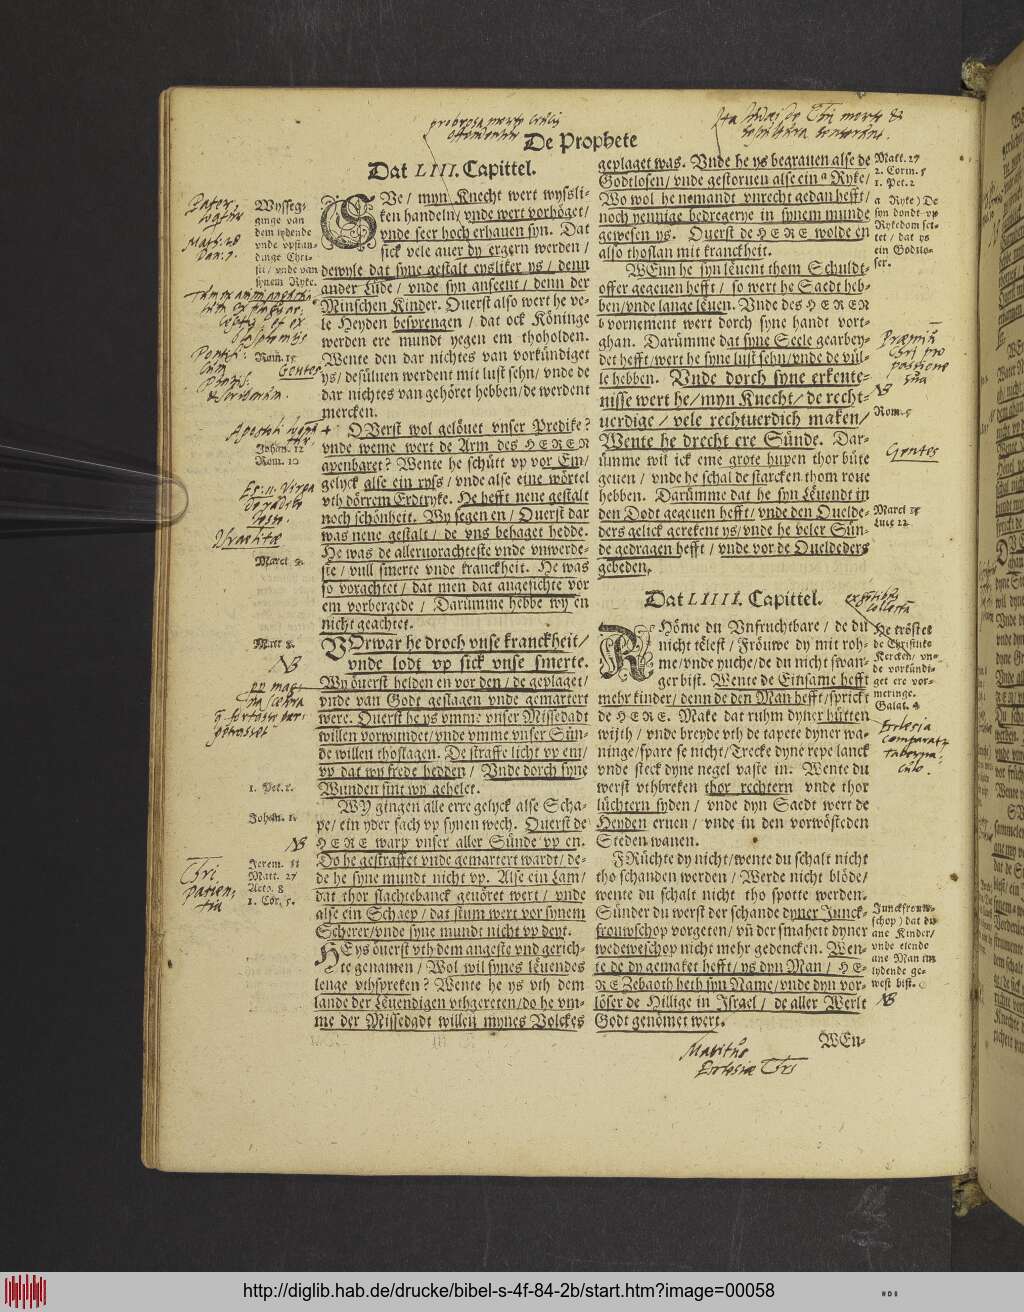 De Prophete
Dat LIII. Capittel.
SVe / myn Knecht wert wyßli-
ken handeln / vnde wert vorhöget /
vnde seer hoch erhauen syn. Dat
sick vele auer dy ergern werden /
dewyle dat syne gestalt eysliker ys / denn
ander Lüde / vnde syn anseent / denn der
Minschen Kinder. Ouerst also wert he ve-
le Heyden besprengen / dat ock Köninge
werden ere mundt yegen em thoholden.
Wente den dar nichtes van vorkündiget
ys / desüluen werdent mit lust sehn / vnde de
dar nichtes van gehöret hebben / de werdent
mercken.
OVerst wol gelöuet vnser Predike?
vnde weme wert de Arm des HEREN
apenbaret? Wente he schütt vp vor Em /
gelyck alse ein ryß / vnde alse eine wörtel
vth dörrem Erdtryke. He hefft nene gestalt
noch schönheit. Wy segen en / Ouerst dar
was nene gestalt / de vns behaget hedde.
He was de alleruorachteste vnde vnwerde-
ste / vull smerte vnde kranckheit. He was
so vorachtet / dat men dat angesichte vor
em vorbergede / Darümme hebbe wy en
nicht geachtet.
VOrwar he droch vnse kranckheit /
vnde lodt vp sick vnse smerte.
Wy öuerst helden en vor den / de geplaget /
vnde van Godt geslagen vnde gemartert
were. Ouerst he ys vmme vnser Missedadt
willen vorwundet / vnde vmme vnser Sün-
de willen thoslagen. De straffe licht vp em /
vp dat wy frede hedden / Vnde dorch syne
Wunden sint wy gehelet.
WY gingen alle erre gelyck alse Scha-
pe / ein yder sach vp synen wech. Ouerst de
HERE warp vnser aller Sünde vp en.
Do he gestraffet vnde gemartert wardt / de-
de he syne mundt nicht vp. Alse ein Lam /
dat thor slachtebanck geuöret wert / vnde
alse ein Schaep / dat stum wert vor synem
Scherer / vnde syne mundt nicht vp deyt.
HEys öuerst vth dem angeste vnd gerich-
te genamen / Wol wil synes leuendes
lenge vthspreken? Wente he ys vth dem
lande der Leuendigen vthgereten / do he vm-
me der Missedadt willen mynes Volckes
Wysseg-
ginge van
dem lydende
vnde vpstan-
dinge Chri-
sti / vnde van
synem Ryke.
Rom. 15
Johan. 12
Rom. 10
Marci 9.
Matt. 8.
NB
1. Pet. 2.
Johan. 1.
NB
Jerem. 11
Matt. 27
Acto. 8
1. Cor. 5.
geplaget was. Vnde he ys begrauen alse de
Godtlosen / vnde gestoruen alse ein a Ryke /
Wo wol he nemandt vnrecht gedan hefft /
noch yennige bedregerye in synem munde
gewesen ys. Ouerst de HERE wolde en
also thoslan mit kranckheit.
WEnn he syn leuent thom Schuldt-
offer gegeuen hefft / so wert he Saedt heb-
ben / vnde lange leuen. Vnde des HEREN
b vornement wert dorch syne handt vort-
ghan. Darümme dat syne Seele gearbey-
det hefft / wert he syne lust sehn / vnde de vül-
le hebben. Vnde dorch syne erkente-
nisse wert he / myn Knecht / de recht-
uerdige / vele rechtuerdich maken /
Wente he drecht ere Sünde. Dar-
ümme wil ick eme grote hupen thor büte
geuen / vnde he schal de starcken thom roue
hebben. Darümme dat he syn Leuendt in
den Dodt gegeuen hefft / vnde den Ouelde-
ders gelick gerekent ys / vnde he veler Sün-
de gedragen hefft / vnde vor de Oueldeders
gebeden.
Dat LIIII. Capittel.
RHöme du Vnfruchtbare / de du
nicht telest / Fröuwe dy mit roh-
me / vnde yuche / de du nicht swan-
ger bist. Wente de Einsame hefft
mehr kinder / denn de den Man hefft / sprickt
de HERE. Make dat ruhm dyner hütten
wijth / vnde breyde vth de tapete dyner wa-
ninge / spare se nicht / Trecke dyne repe lanck
vnde steck dyne negel vaste in. Wente du
werst vthbreken thor rechtern vnde thor
lüchtern syden / vnde dyn Saedt wert de
Heyden eruen / vnde in den vorwösteden
Steden wanen.
FRüchte dy nicht / wente du schalt nicht
tho schanden werden / Werde nicht blöde /
wente du schalt nicht tho spotte werden.
Sünder du werst der schande dyner Junck-
frouwschop vorgeten / vñ der smaheit dyner
wedeweschop nicht mehr gedencken. Wen-
te de dy gemaket hefft / ys dyn Man / HE-
RE Zebaoth heth syn Name / vnde dyn vor-
löser de Hillige in Israel / de aller Werlt
Godt genömet wert.
WEn-
Matt. 27
2. Corin. 5
1. Pet. 2
a Ryke) De
syn dondt vp
Rykedom set-
tet / dat ys
ein Godtlo-
ser.
NB
Rom. 5
Gentes
Marci 15
Luce 22
He tröstet
de Christlike
Kercken / vn-
de vorkündi-
get ere vor-
meringe.
Galat. 4
Ecclesia
comparatur
Taberna-
culo.
Junckfrouw-
schop) dat du
ane Kinder /
vnde elende
ane Man im
lydende ge-
west bist.
NB
Maritus
Ecclesiæ Chri
http://diglib.hab.de/drucke/bibel-s-4f-84-2b/start.htm?image=00058